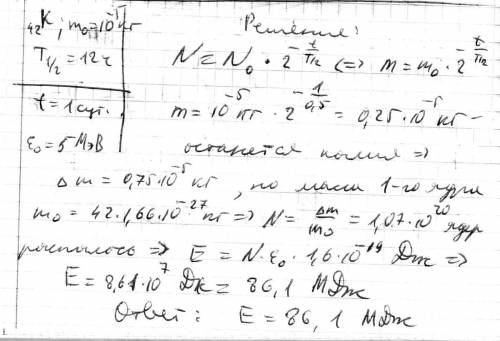 ₄₂K; m₀=10⁻⁵кг
T₁/₂ = 12ч
t = 1 сут.
ε₀ = 5 МэВ
Решение:
N = N₀ · 2^(-t/T₁/₂) <=> m = m₀ · 2^(-t/T₁/₂)
m = 10⁻⁵ кг · 2^(-1/0,5) = 0,25·10⁻⁵ кг -
останется калия =>
Δm = 0,75·10⁻⁵ кг, но масса 1-го ядра
m₀ = 42·1,66·10⁻²⁷ кг => N = Δm/m₀ = 1,07·10²⁰ ядер
распалось => E = N·ε₀·1,6·10⁻¹⁹ Дж =>
E = 8,61·10⁷ Дж = 86,1 МДж
Ответ: E = 86,1 МДж